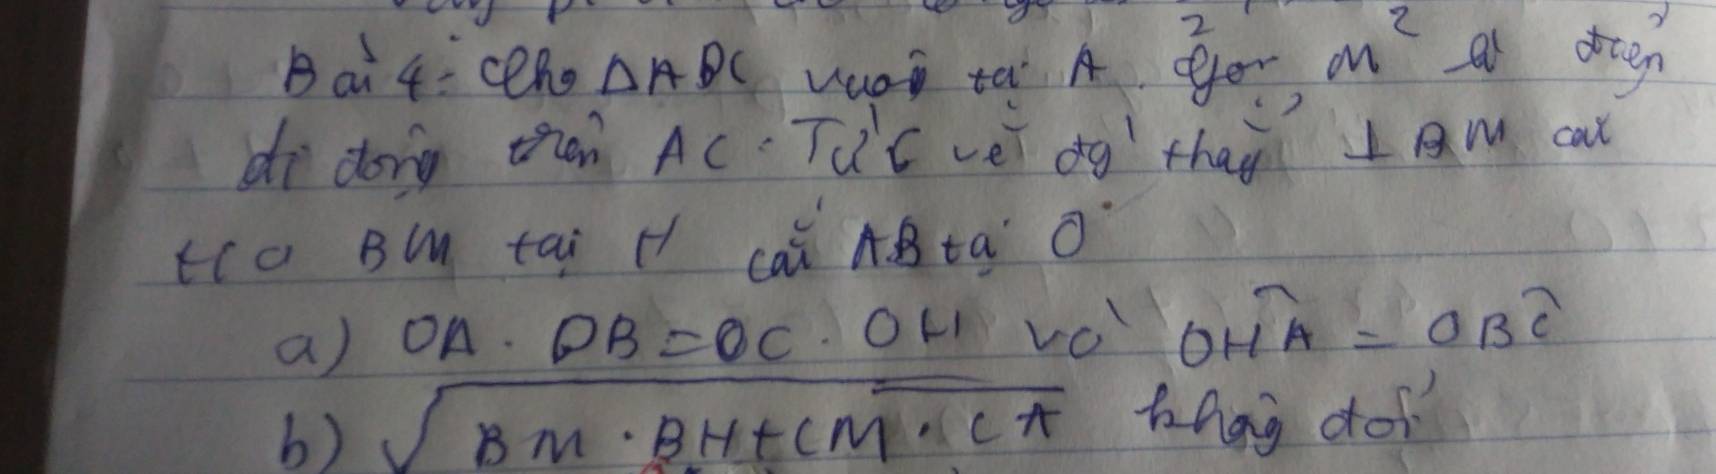 Bài 4: Cho ΔABC vuôg tại A. Gọi M là điển
di động trên AC. Từ C vẽ đg thẳg ⊥ BM cắt
tia BM tại H cắt AB tạ O
a) OA . OB = OC . OH và OHA^ = OBC^
b) √(BM . BH + CM . CA) khôg đổi